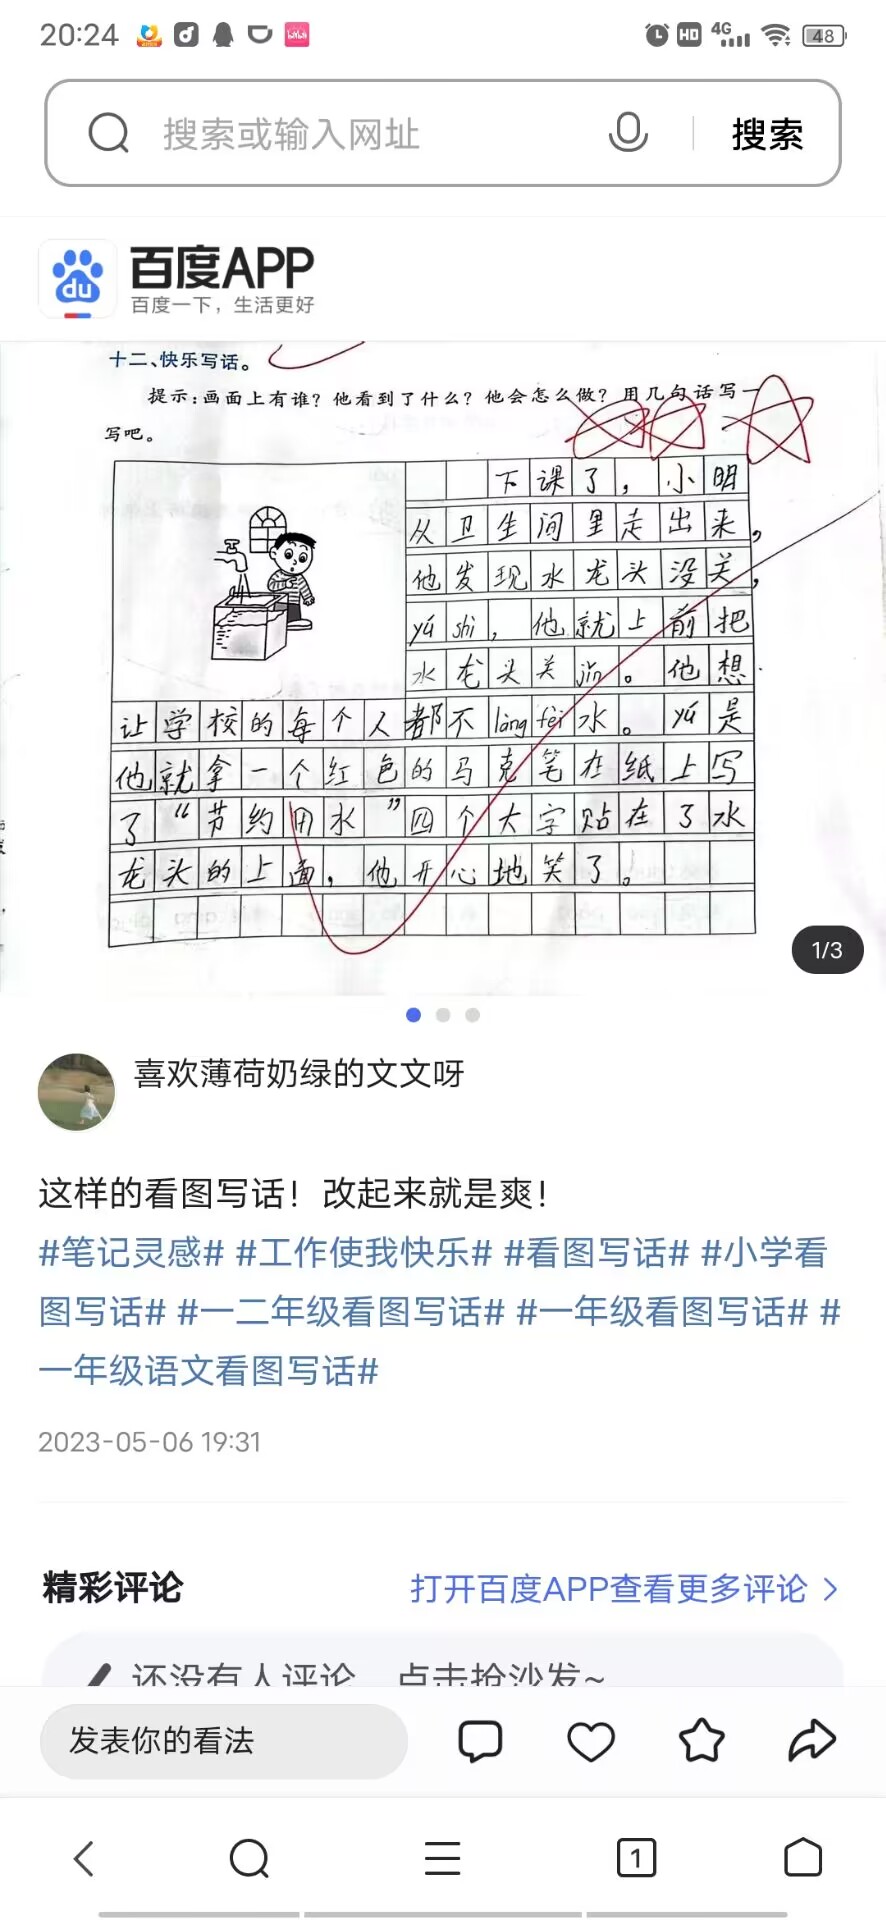 20:24
HD 4G 48
搜索或输入网址
搜索
du
百度APP
百度一下，生活更好
十二、快乐写话。
提示：画面上有谁？他看到了什么？他会怎么做？用几句话写一
写吧。
下课了，小明
从卫生间里走出来，
他发现水龙头没关，
yú shì，他就上前把
水龙头关jǐn。他想
让学校的每个人都不làng fèi水。yú是
他就拿一个红色的马克笔在纸上写
了“节约用水”四个大字贴在了水
龙头的上面，他开心地笑了。
1/3
喜欢薄荷奶绿的文文呀
这样的看图写话！改起来就是爽！
#笔记灵感# #工作使我快乐# #看图写话# #小学看
图写话# #一二年级看图写话# #一年级看图写话# #
一年级语文看图写话#
2023-05-06 19:31
精彩评论
打开百度APP查看更多评论
还没有人评论，点击抢沙发~
发表你的看法
1